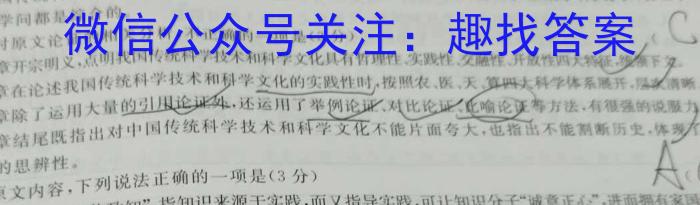 学问都是综合的
微信公众号关注：趣找答案
对原文论
不正确的一项是(3分)
C
章开宗明义,点明我国传统科学技术和科学文化具有哲理性、实践性、交融性、开放性四大特征,统领下文
章在论述我国传统科学技术和科学文化的实践性时,按照农、医、天、算四大科学体系展开,层次清晰
章除了运用大量的引用论证外,还运用了举例论证、对比论证、比喻论证等方法,有很强的说服力
章结尾既指出对中国传统科学技术和科学文化不能片面夸大,也指出不能割断历史,体现
的思辨性。
A
原文内容,下列说法正确的一项是(3分)
致知”指知识来源于实践,而又指导实践,可让知识分子“诚意正心”,进而拥有家国